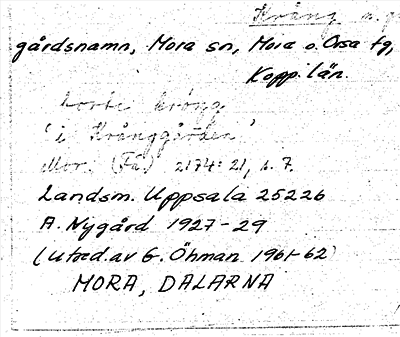 Krång
gårdsnamn, Mora sn, Mora o. Orsa tg,
Kopp. län.
borti krongg
'i Krånggården'
Mor. (Få) 2174:21, s. 7.
Landsm. Uppsala 25226
A. Nygård 1927-29
(Utred. av G. Öhman 1961-62
MORA, DALARNA